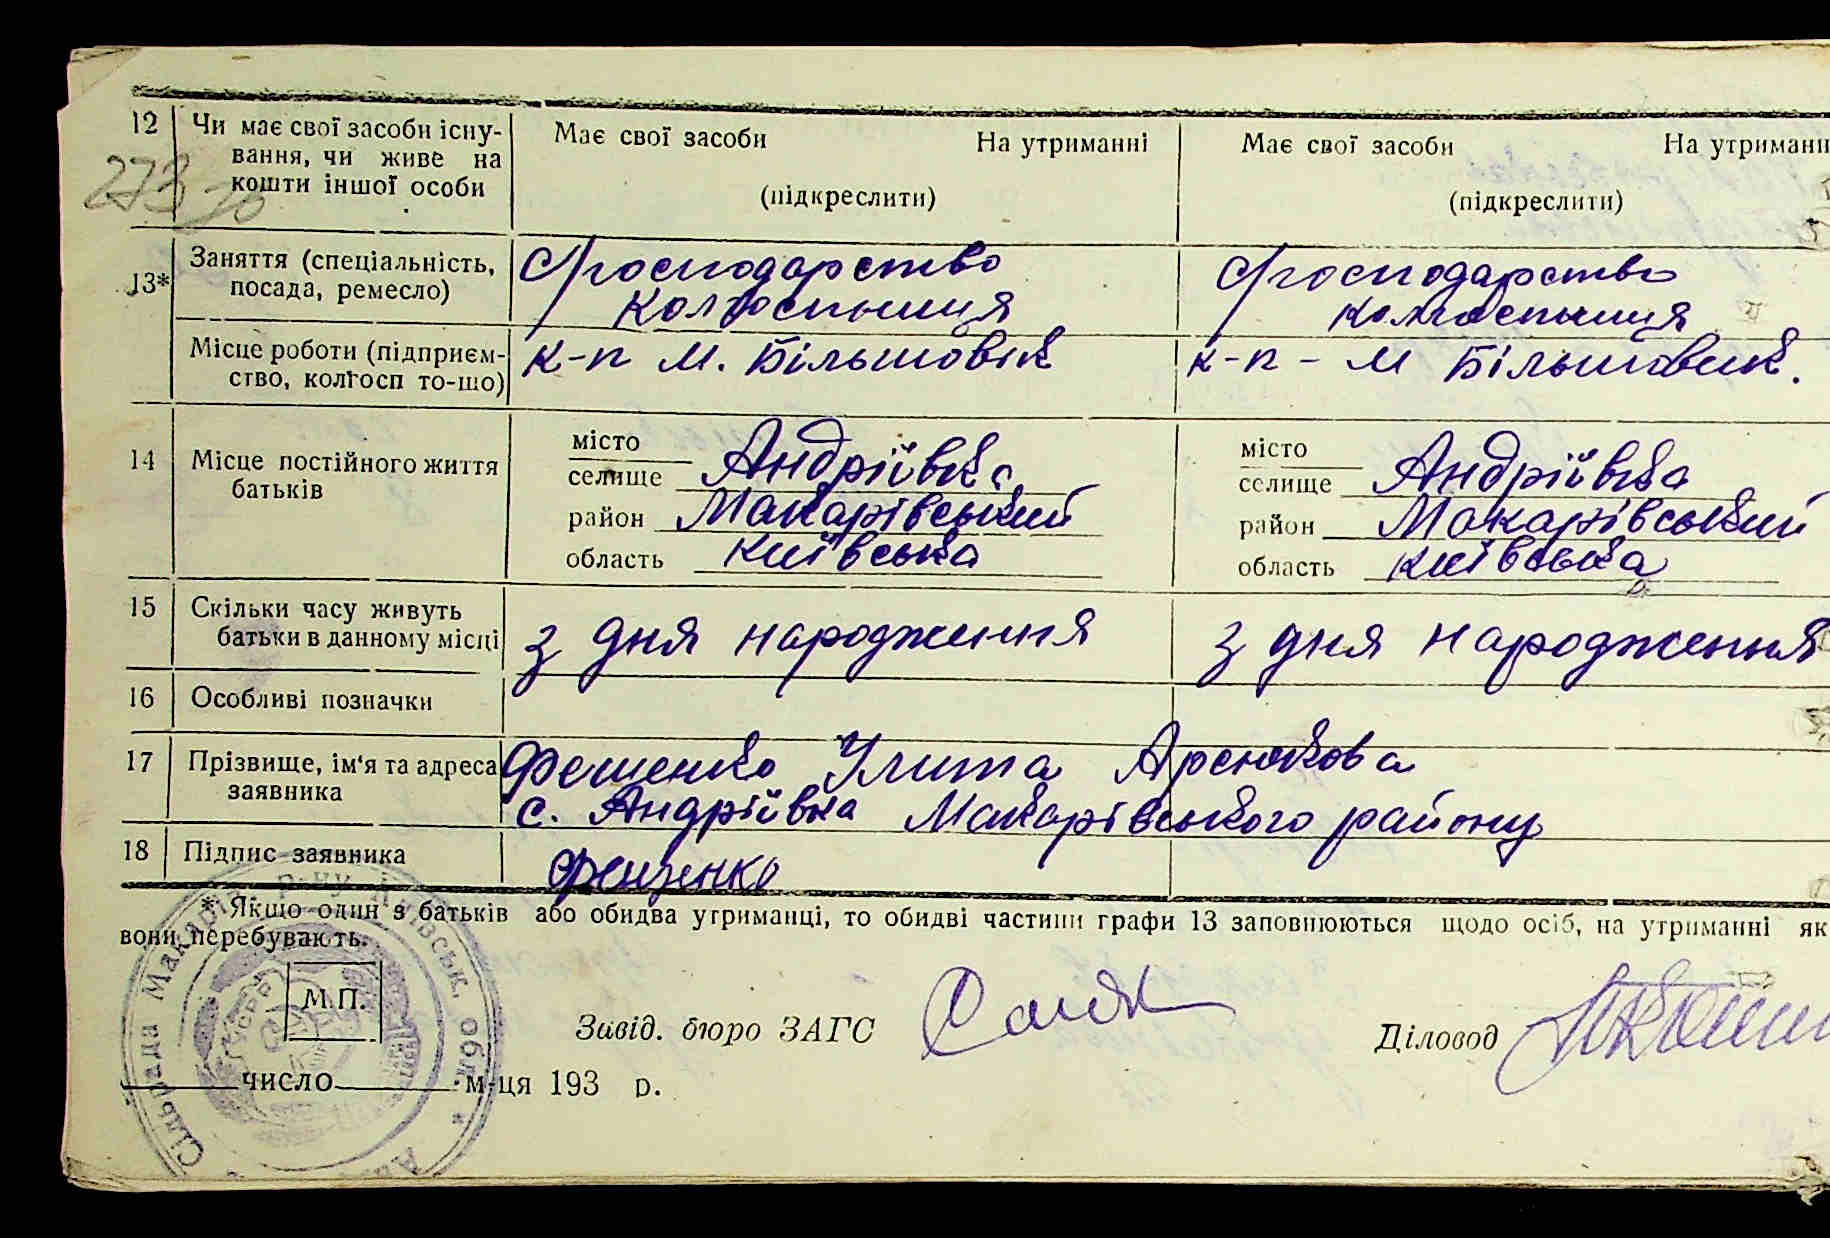 12 Чи має свої засоби існу- Має свої засоби На утриманні Має свої засоби На утриманн
вання, чи живе на
273 кошти іншої особи (підкреслити) (підкреслити)
13* Заняття (спеціальність, Господарство Господарство
посада, ремесло) колгоспниця колгоспниця
Місце роботи (підприєм- к-п М. Більшовік к-п - М Більшовик.
ство, колгосп то-що)
14 Місце постійного життя місто місто
батьків селище Андріївка селище Андріївка
район Макарівський район Макарівський
область київська область київська
15 Скільки часу живуть
батьки в данному місці з дня народження з дня народження
16 Особливі позначки
17 Прізвище, ім'я та адреса Фещенко Улита
заявника с. Андріївка Макарівського району
18 Підпис заявника Фещенко
* Якшо один з батьків або обидва утриманці, то обидві частини графи 13 заповнюються щодо осіб, на утриманні як
вони перебувають.
М.П.
Завід. бюро ЗАГС Діловод
число м-ця 193 р.
Сільрада Макарів р-ну Київськ. обл. *
УСРР